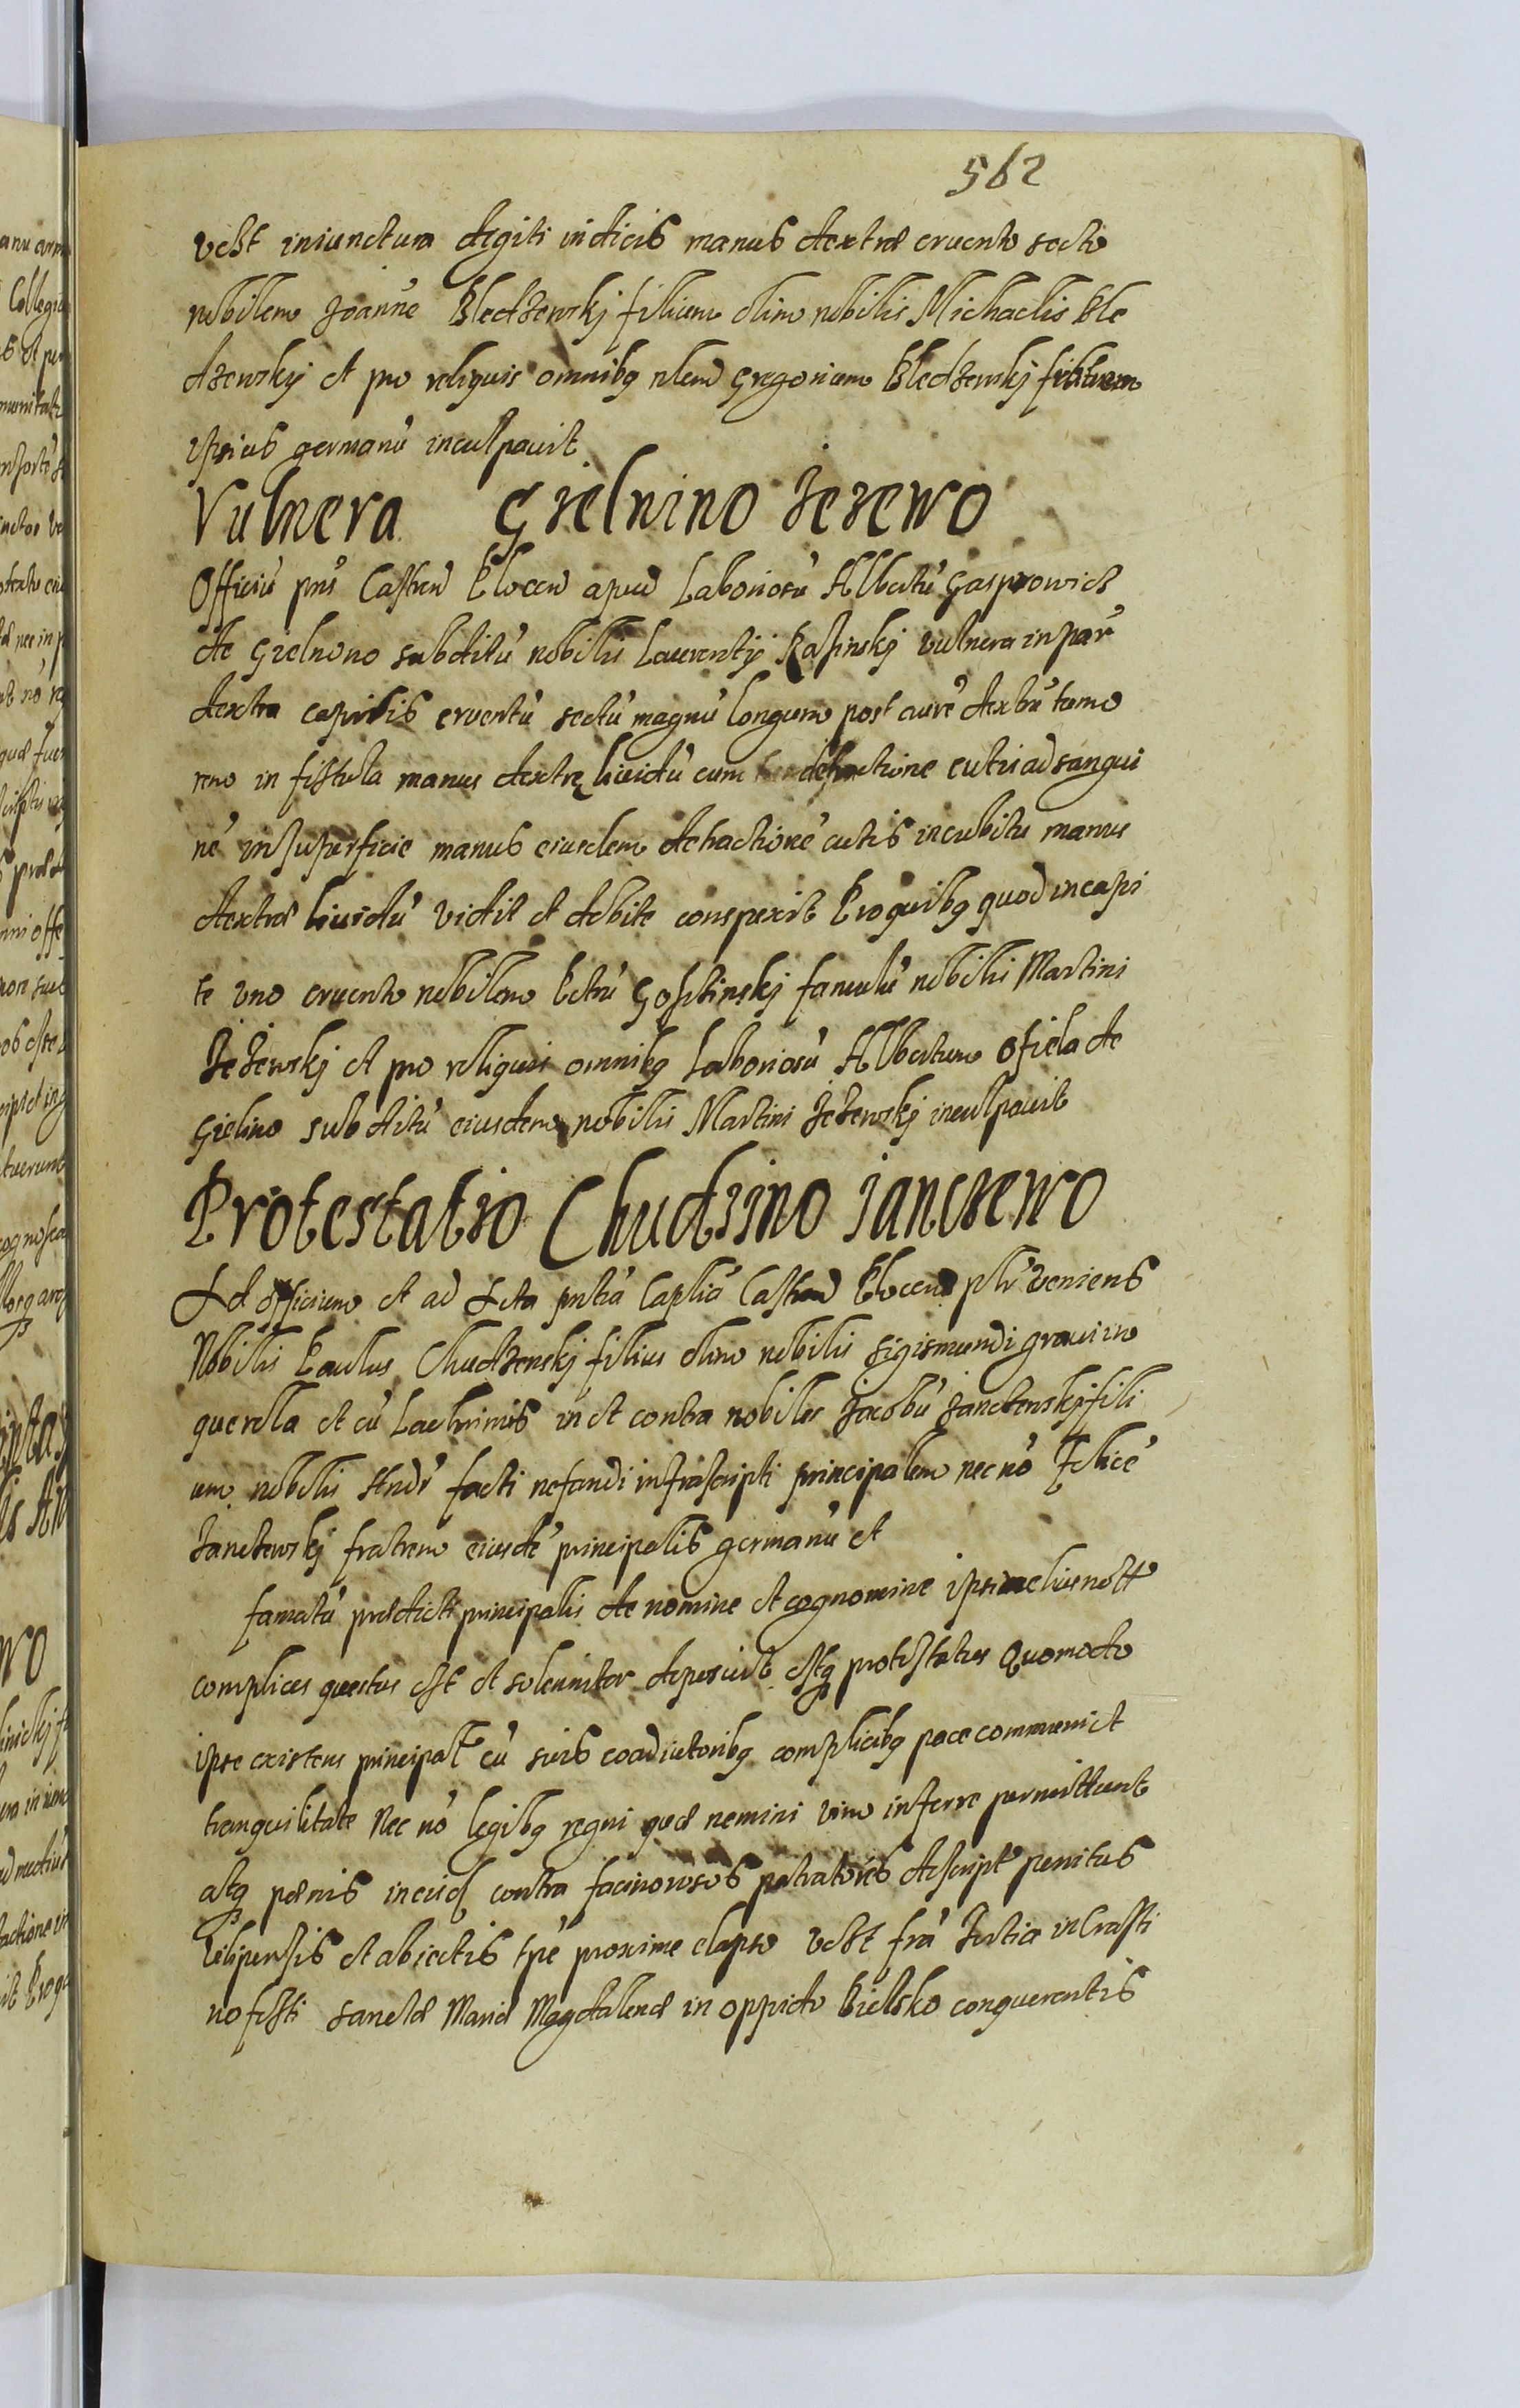 562
ut est iniunctura degiti indicis manus dextræ cruento secto
nobilem Joannē Bledzewskj filium olim nobilis Michaelis Ble
dzewskij et pro reliquis omnibq nlem Gregorium Bledzewskj fratrem
ipsius germanū inculpauit
Vulnera Gielnino Jezewo
Officiū pns Castren Plocen apud Laboriosū Albertū Gasprowicz
de Gielnino subditū nobilis Laurentij Kasinskj vulnera in par
dextra capitis cruentū sectū magnū longum post aurē dextrā tumo
rem in fistula manus dextrę liuidū cum detractione cutis ad sangui
nē in superficie manus eiusdem detractionē cutis in cubitu manus
dextræ liuidū vidit et debite conspexit Pro quibq quod in capi
te vno cruento nobilem Petrū Gostinskj famulū nobilis Martini
Jezewskj et pro reliquis omnibq Laboriosū Albertum Osiela de
Gielino subditū eiusdem nobilis Martini Jezewskj inculpauit
Protestatio Chudzino Janczewo
Ad officium et ad Acta pntiā Caplia Castren Plocen plr veniens
Nobilis Paulus Chudzenskj filius olim nobilis Sigismundi graui in
querella et cū Lachrimis in et contra nobiles Jacobū Janczewskj fili
um nobilis Andr facti nefandi infrascripti principalem nec nō Felicē
Janczewskj fratrem eiusdē principalis germanū et
famatū prædicti principalis de nomine et cognomine ipsi melius nott
complices questus est et solenniter deposuit estq protestatus Quomodo
ipse existens principal cū suis coadiutoribq complicibq pace communi et
tranquilitate Nec nō legibq regni quæ nemini vim inferre permittunt
atq pænis in eisd contra facinorosos patratores descript penitus
vilipensis et abiectis tpē proxime elapso vt est fra Tertia in Crasti
no festi sanctæ Mariæ Magdalenæ in oppido Bielsko conquerentis